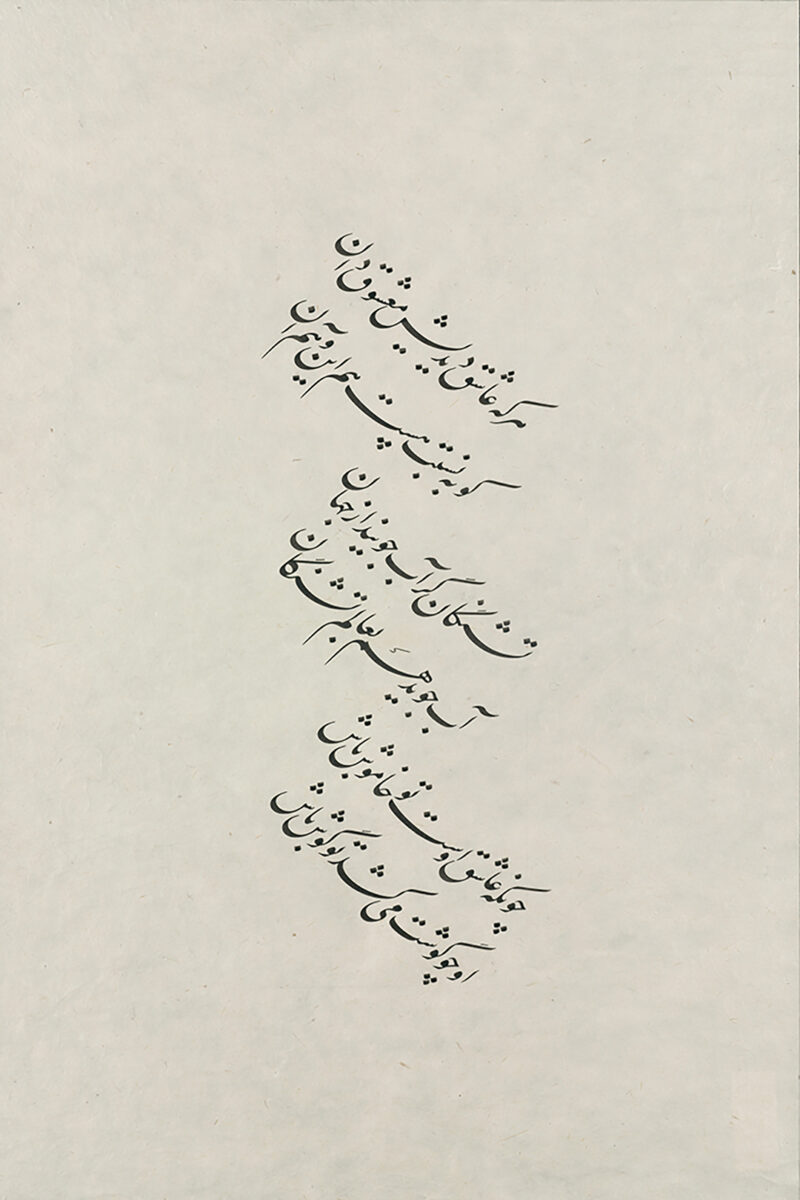 هر که عاشق دیدیش معشوق دان
کو به نسبت هست هم این و هم آن
تشنگان گر آب جویند از جهان
آب جوید هم بعالم تشنگان
چونکه عاشق اوست تو خاموش باش
او چو گوشت می کشد تو گوش باش